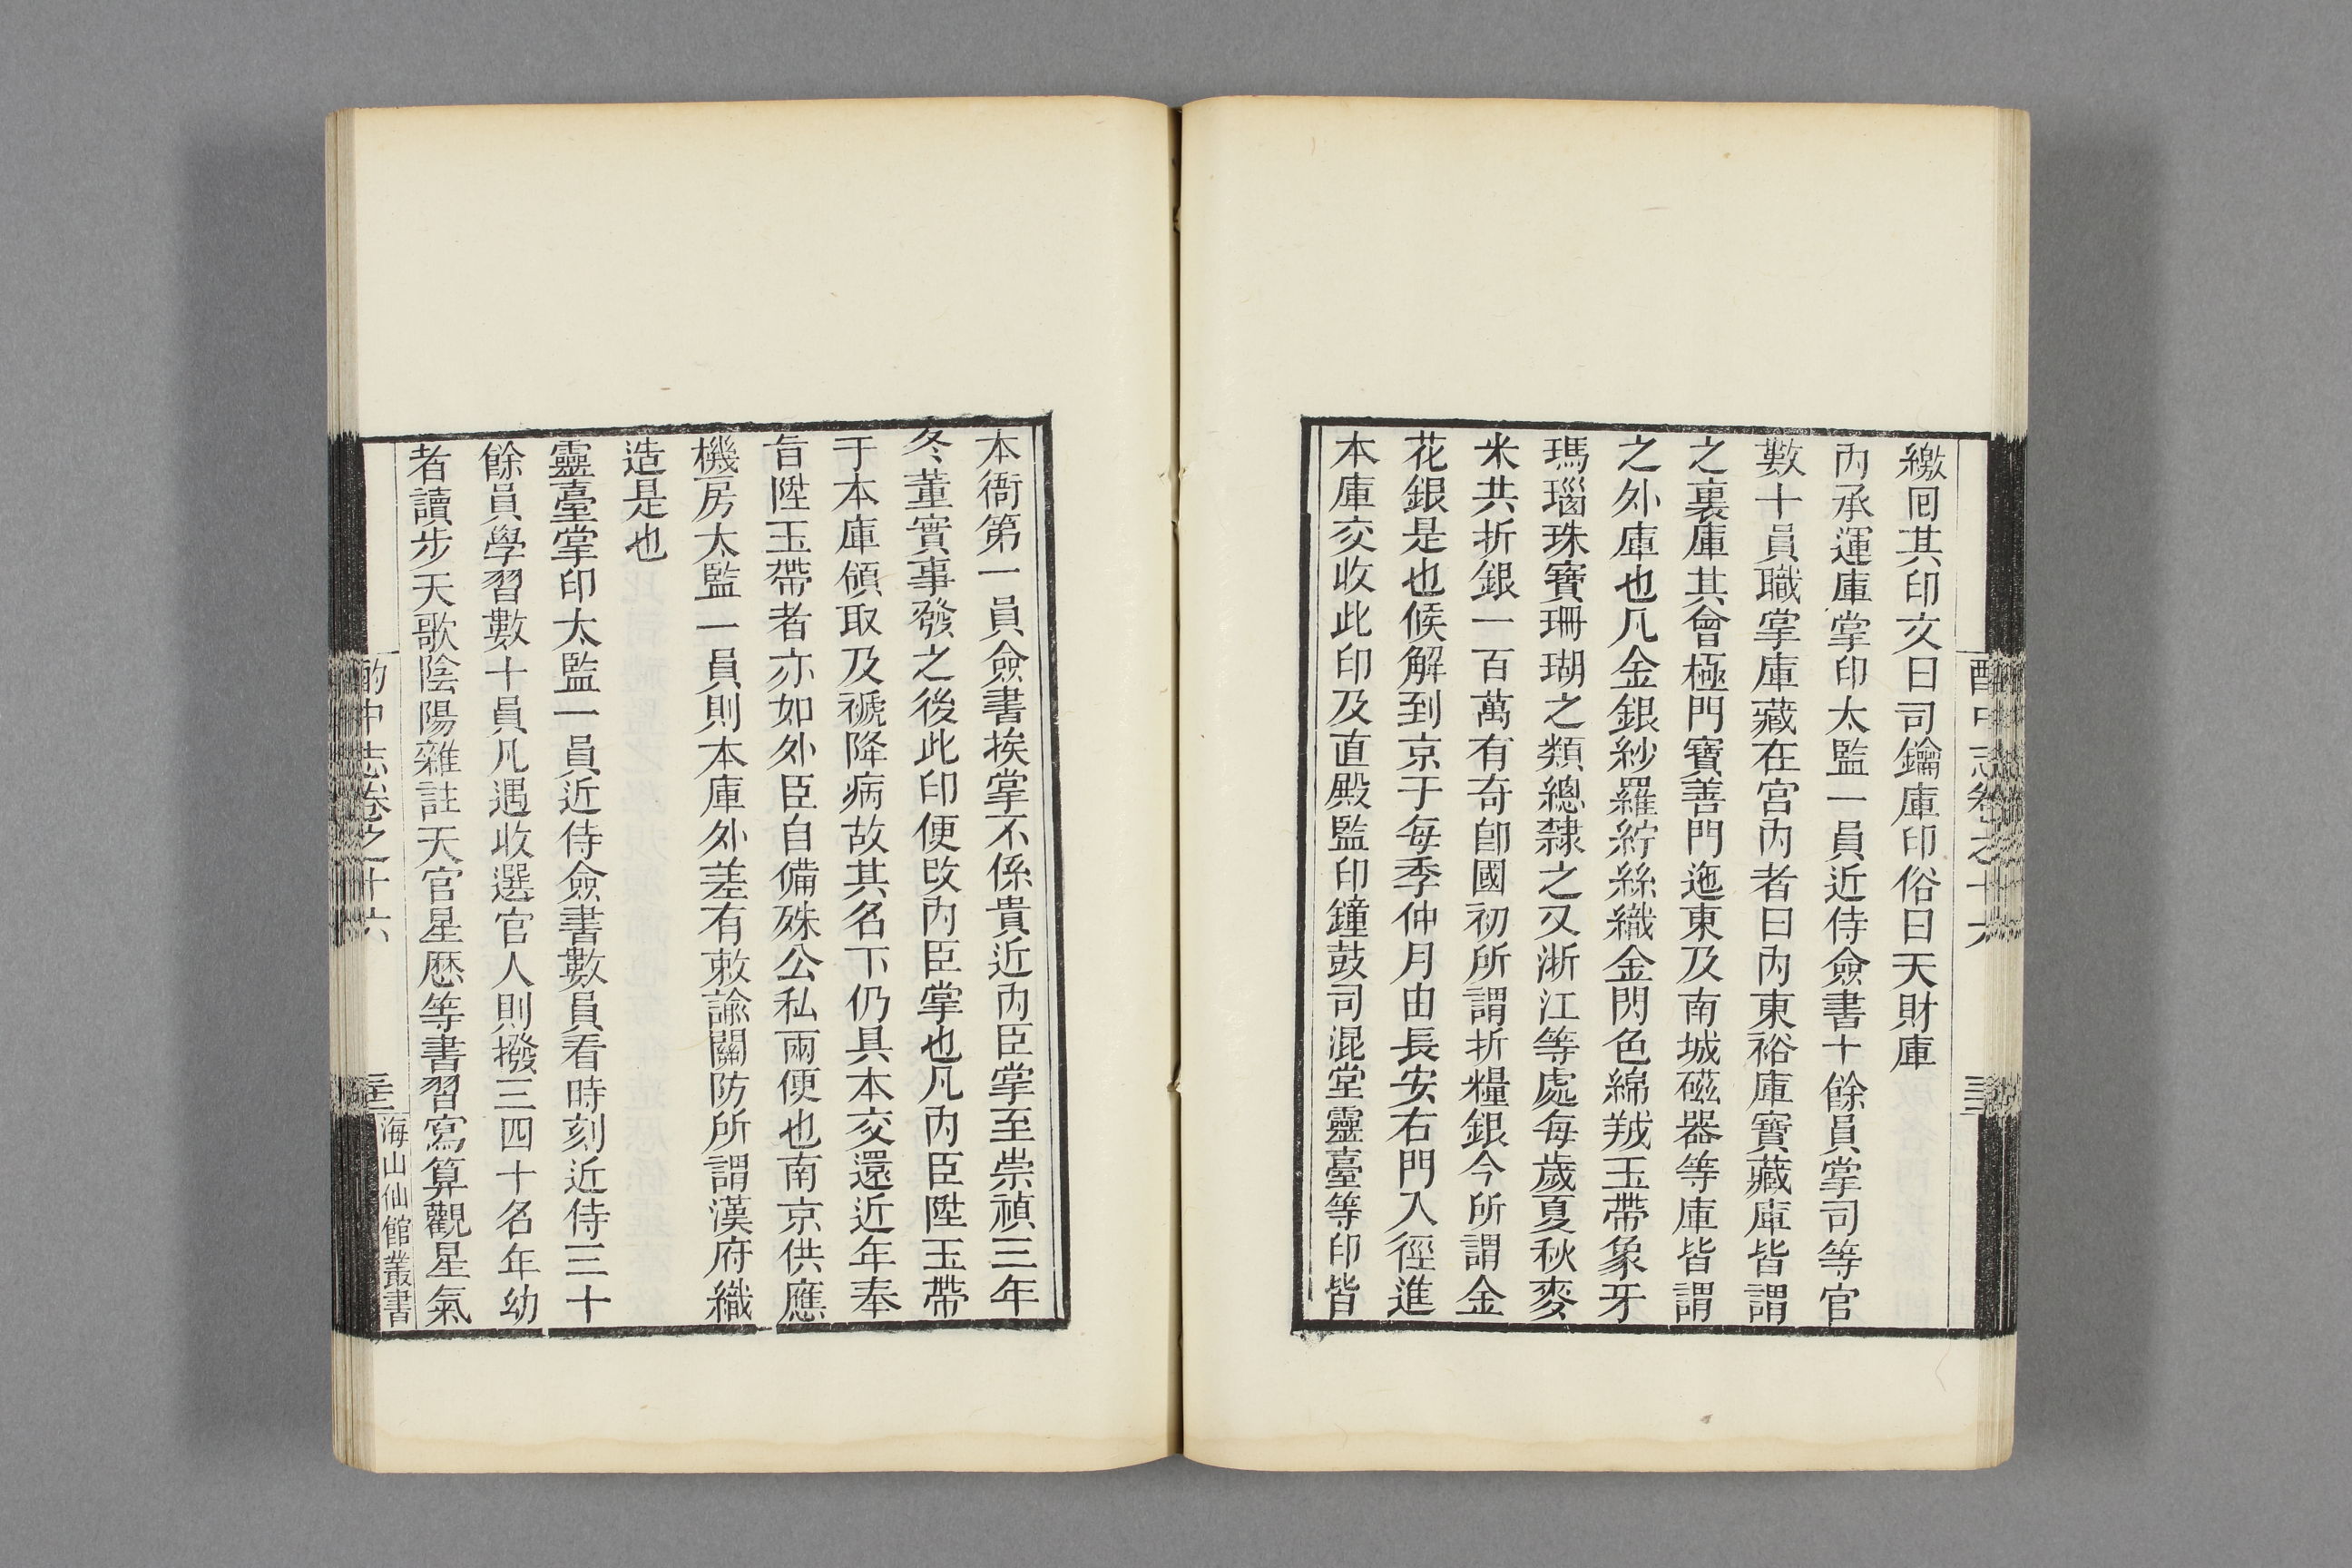 繳囘其印文曰司鑰庫印俗曰天財庫
內承運庫掌印太監一員近侍僉書十餘員掌司等官
數十員職掌庫藏在宮內者曰內東裕庫寶藏庫皆謂
之裏庫其會極門寶善門迤東及南城磁器等庫皆謂
之外庫也凡金銀紗羅紵絲織金閃色綿羢玉帶象牙
瑪瑙珠寶珊瑚之類總隸之又浙江等處每歲夏秋麥
米共折銀一百萬有奇卽國初所謂折糧銀今所謂金
花銀是也候解到京于每季仲月由長安右門入徑進
本庫交收此印及直殿監印鐘鼓司混堂靈臺等印皆
本衙第一員僉書挨掌不係貴近內臣掌至崇禎三年
冬董實事發之後此印便改內臣掌也凡內臣陞玉帶
于本庫領取及褫降病故其名下仍具本交還近年奉
旨陞玉帶者亦如外臣自備殊公私兩便也南京供應
機房太監一員則本庫外差有敕諭關防所謂漢府織
造是也
靈臺掌印太監一員近侍僉書數員看時刻近侍三十
餘員學習數十員凡遇收選官人則撥三四十名年幼
者讀步天歌陰陽雜註天官星厯等書習寫算觀星氣
酌中志卷之十六
海山仙館叢書